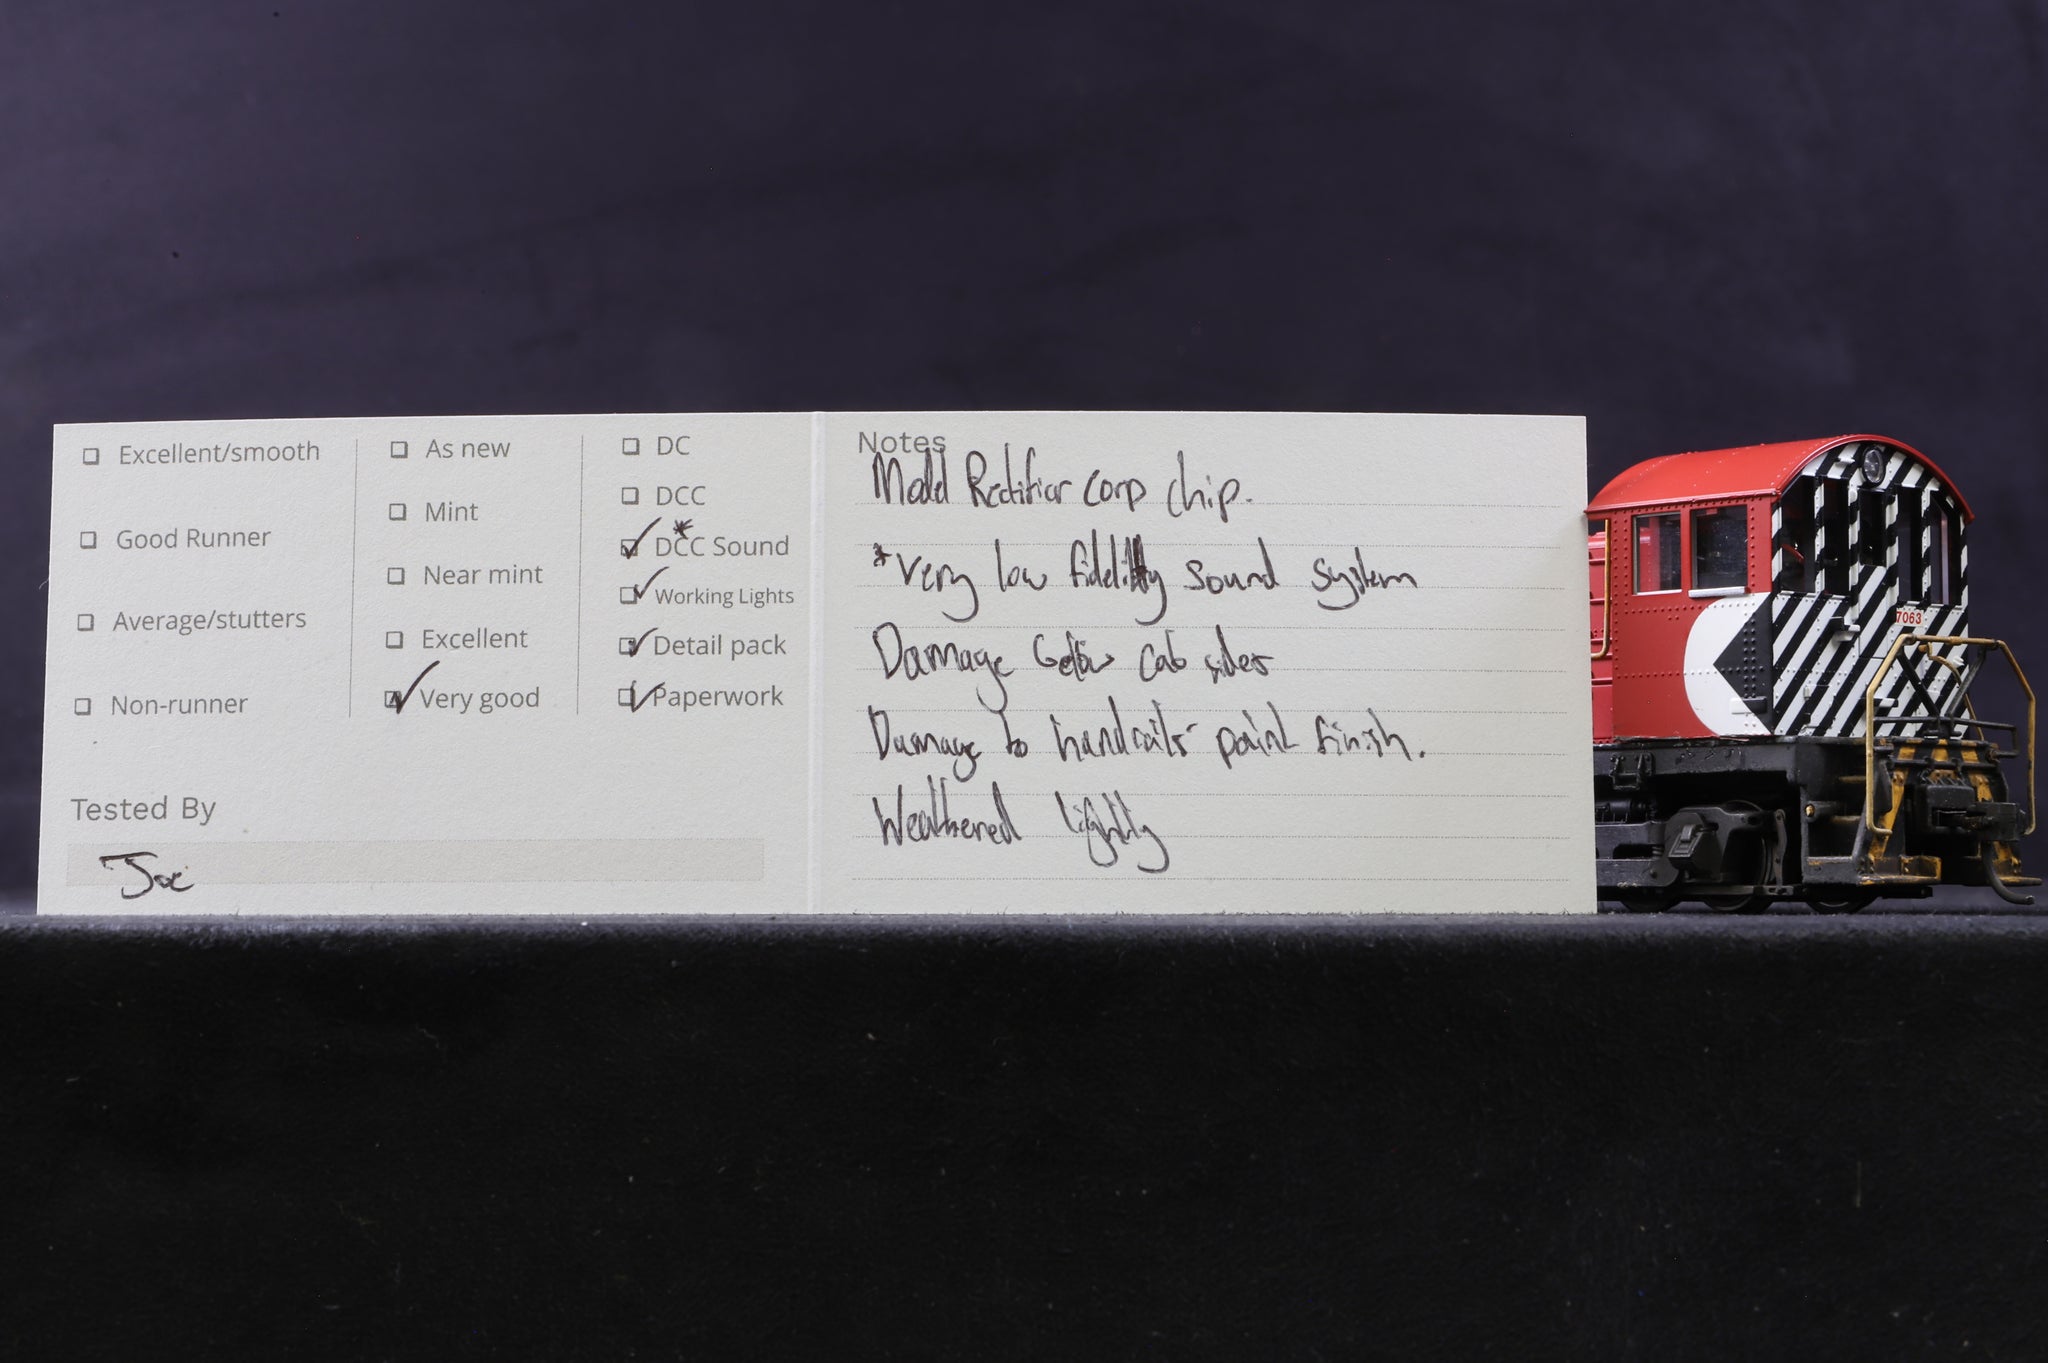 Excellent/smooth
Good Runner
Average/stutters
Non-runner
As new
Mint
Near mint
Excellent
Very good
DC
DCC
*
DCC Sound
Working Lights
Detail pack
Paperwork
Tested By
Joe
Notes
Model Rectifier Corp chip.
*Very low fidelity sound system
Damage below cab sides
Damage to handrails paint finish.
Weathered lightly
7063